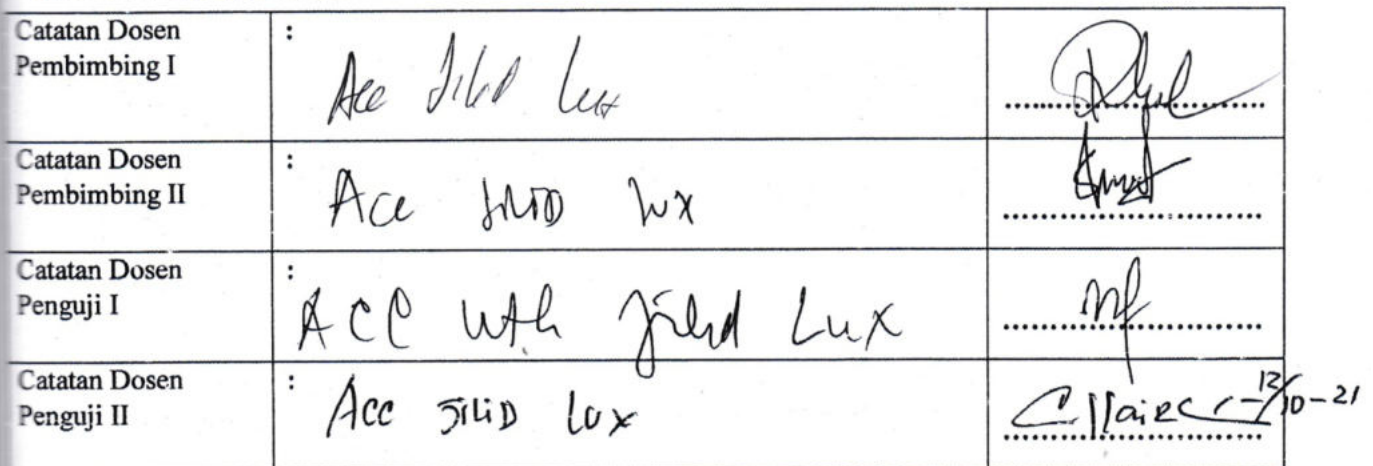 Catatan Dosen
Pembimbing I
:
Acc Jilid Lux
Catatan Dosen
Pembimbing II
:
Acc JILID Lux
Catatan Dosen
Penguji I
:
ACC utk Jilid Lux
Catatan Dosen
Penguji II
:
Acc JILID Lux
12/10-21